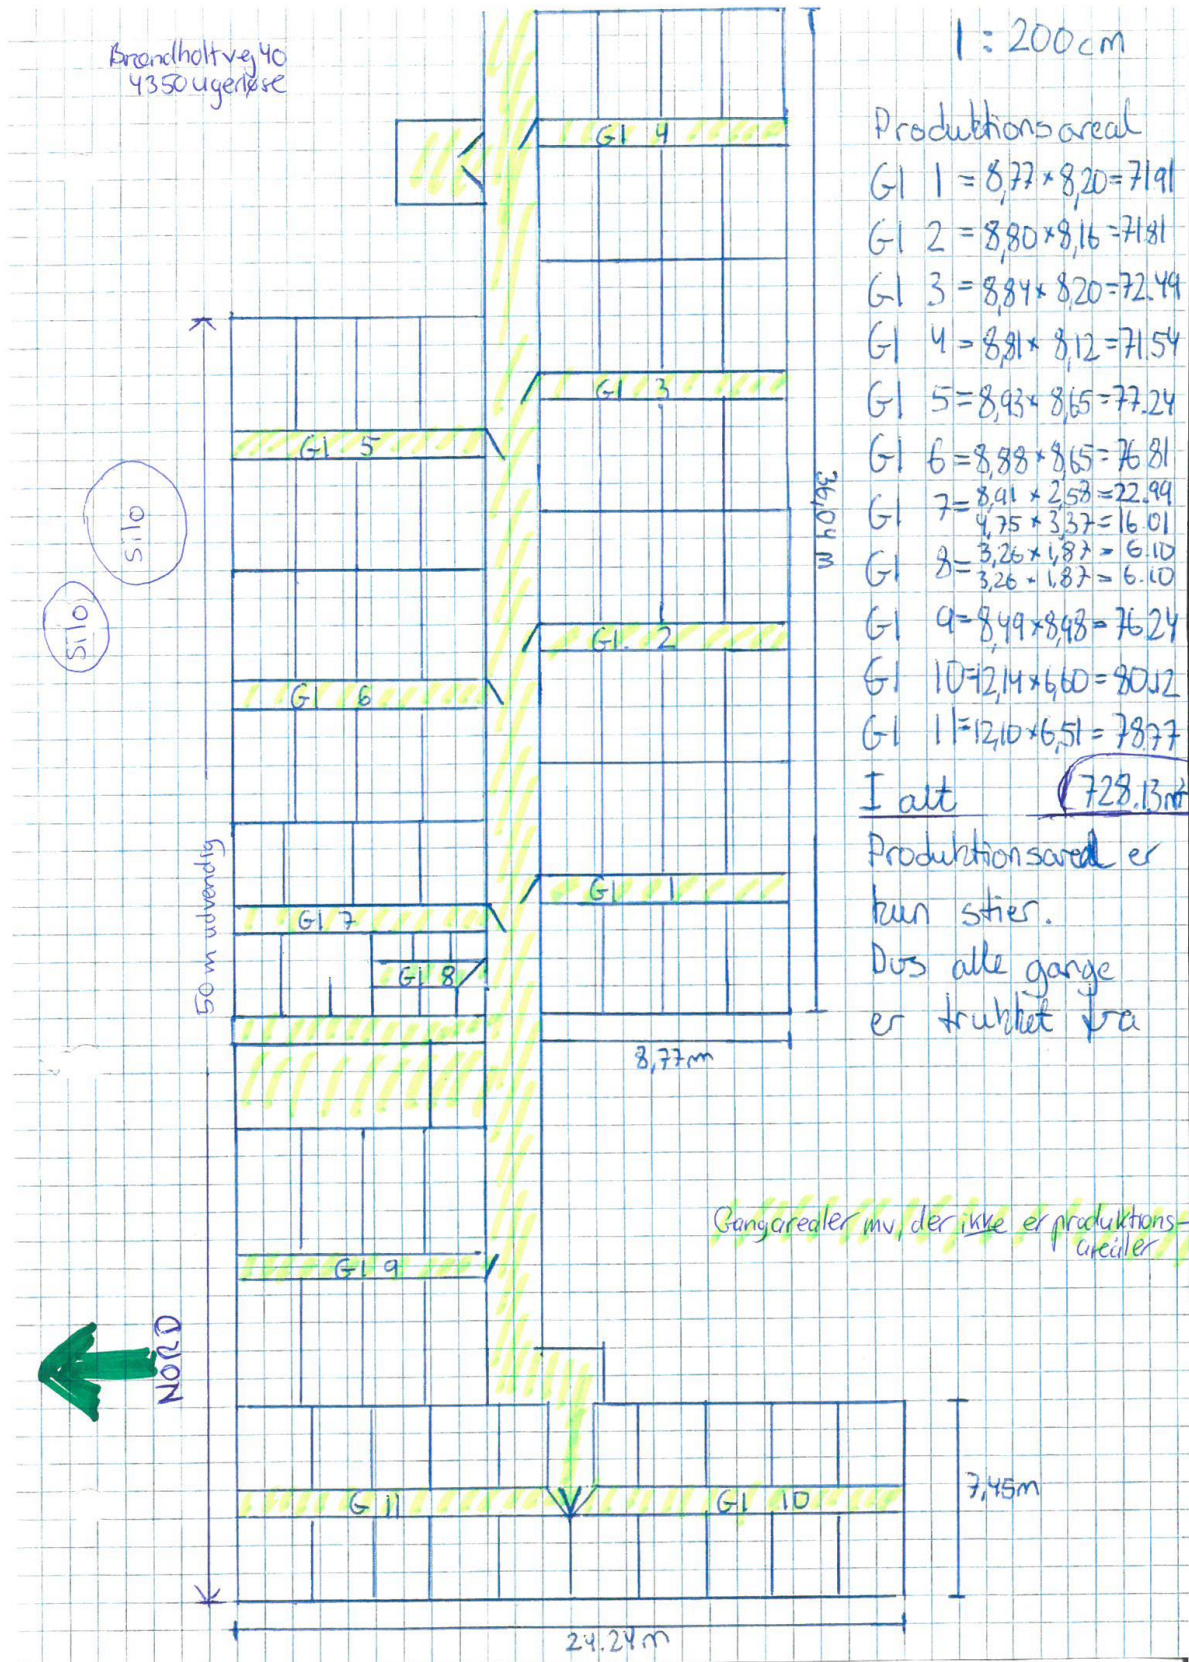 Brændholtvej 40
4350 Ugerløse
1 : 200 cm
Produktionsareal
Gl 1 = 8,77 * 8,20 = 71.91
Gl 2 = 8,80 * 8,16 = 71.81
Gl 3 = 8,84 * 8,20 = 72.49
Gl 4 = 8,81 * 8,12 = 71.54
Gl 5 = 8,93 * 8,65 = 77.24
Gl 6 = 8,88 * 8,65 = 76.81
Gl 7 = 8,91 * 2,58 = 22.99
4,75 * 3,37 = 16.01
Gl 8 = 3,26 * 1,87 = 6.10
3,26 * 1,87 = 6.10
Gl 9 = 8,49 * 8,98 = 76.24
Gl 10 = 12,14 * 6,60 = 80.12
Gl 11 = 12,10 * 6,51 = 78.77
I alt 728.13 m²
Produktionsareal er
kun stier.
Dvs alle gange
er trukket fra
Gl 4
Gl 3
Gl 5
36,04 m
Silo
Silo
Gl. 2
Gl 6
50 m udvendig
Gl 1
Gl 7
Gl 8
8,77 m
Gangarealer mv, der ikke er produktions-
arealer
Gl 9
NORD
G 11
Gl 10
7,45 m
24.24 m